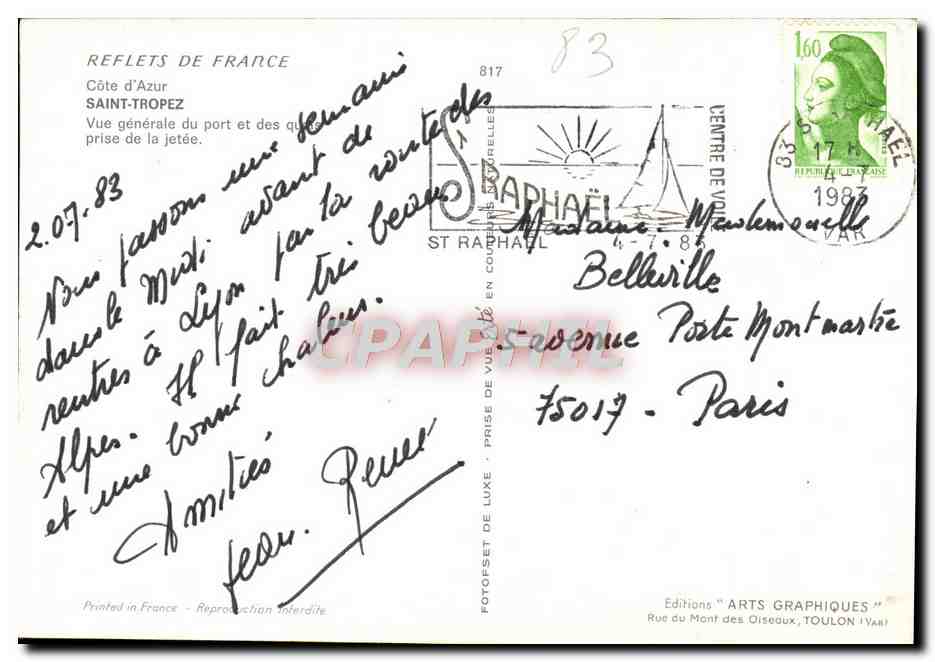 REFLETS DE FRANCE
Côte d'Azur
SAINT-TROPEZ
Vue générale du port et des quais
prise de la jetée.
2.07.83
Nous passons une semaine
dans le Midi avant de
rentrer à Lyon par la route des
Alpes. Il fait très beau
et une bonne chaleur.
Amitiés
Jean. René
Printed in France - Reproduction Interdite
817
FOTOFSET DE LUXE - PRISE DE VUE EN COULEURS NATURELLES
83
ST RAPHAËL
ST RAPHAEL 4-7.83
CENTRE DE VOILE
1,60
REPUBLIQUE FRANÇAISE
83 ST RAPHAEL
17 H
4-7
1983
VAR
Madame. Mademoiselle
Belleville
5 avenue Porte Montmartre
75017 - Paris
CPAPHIL
Editions "ARTS GRAPHIQUES"
Rue du Mont des Oiseaux, TOULON (VAR)